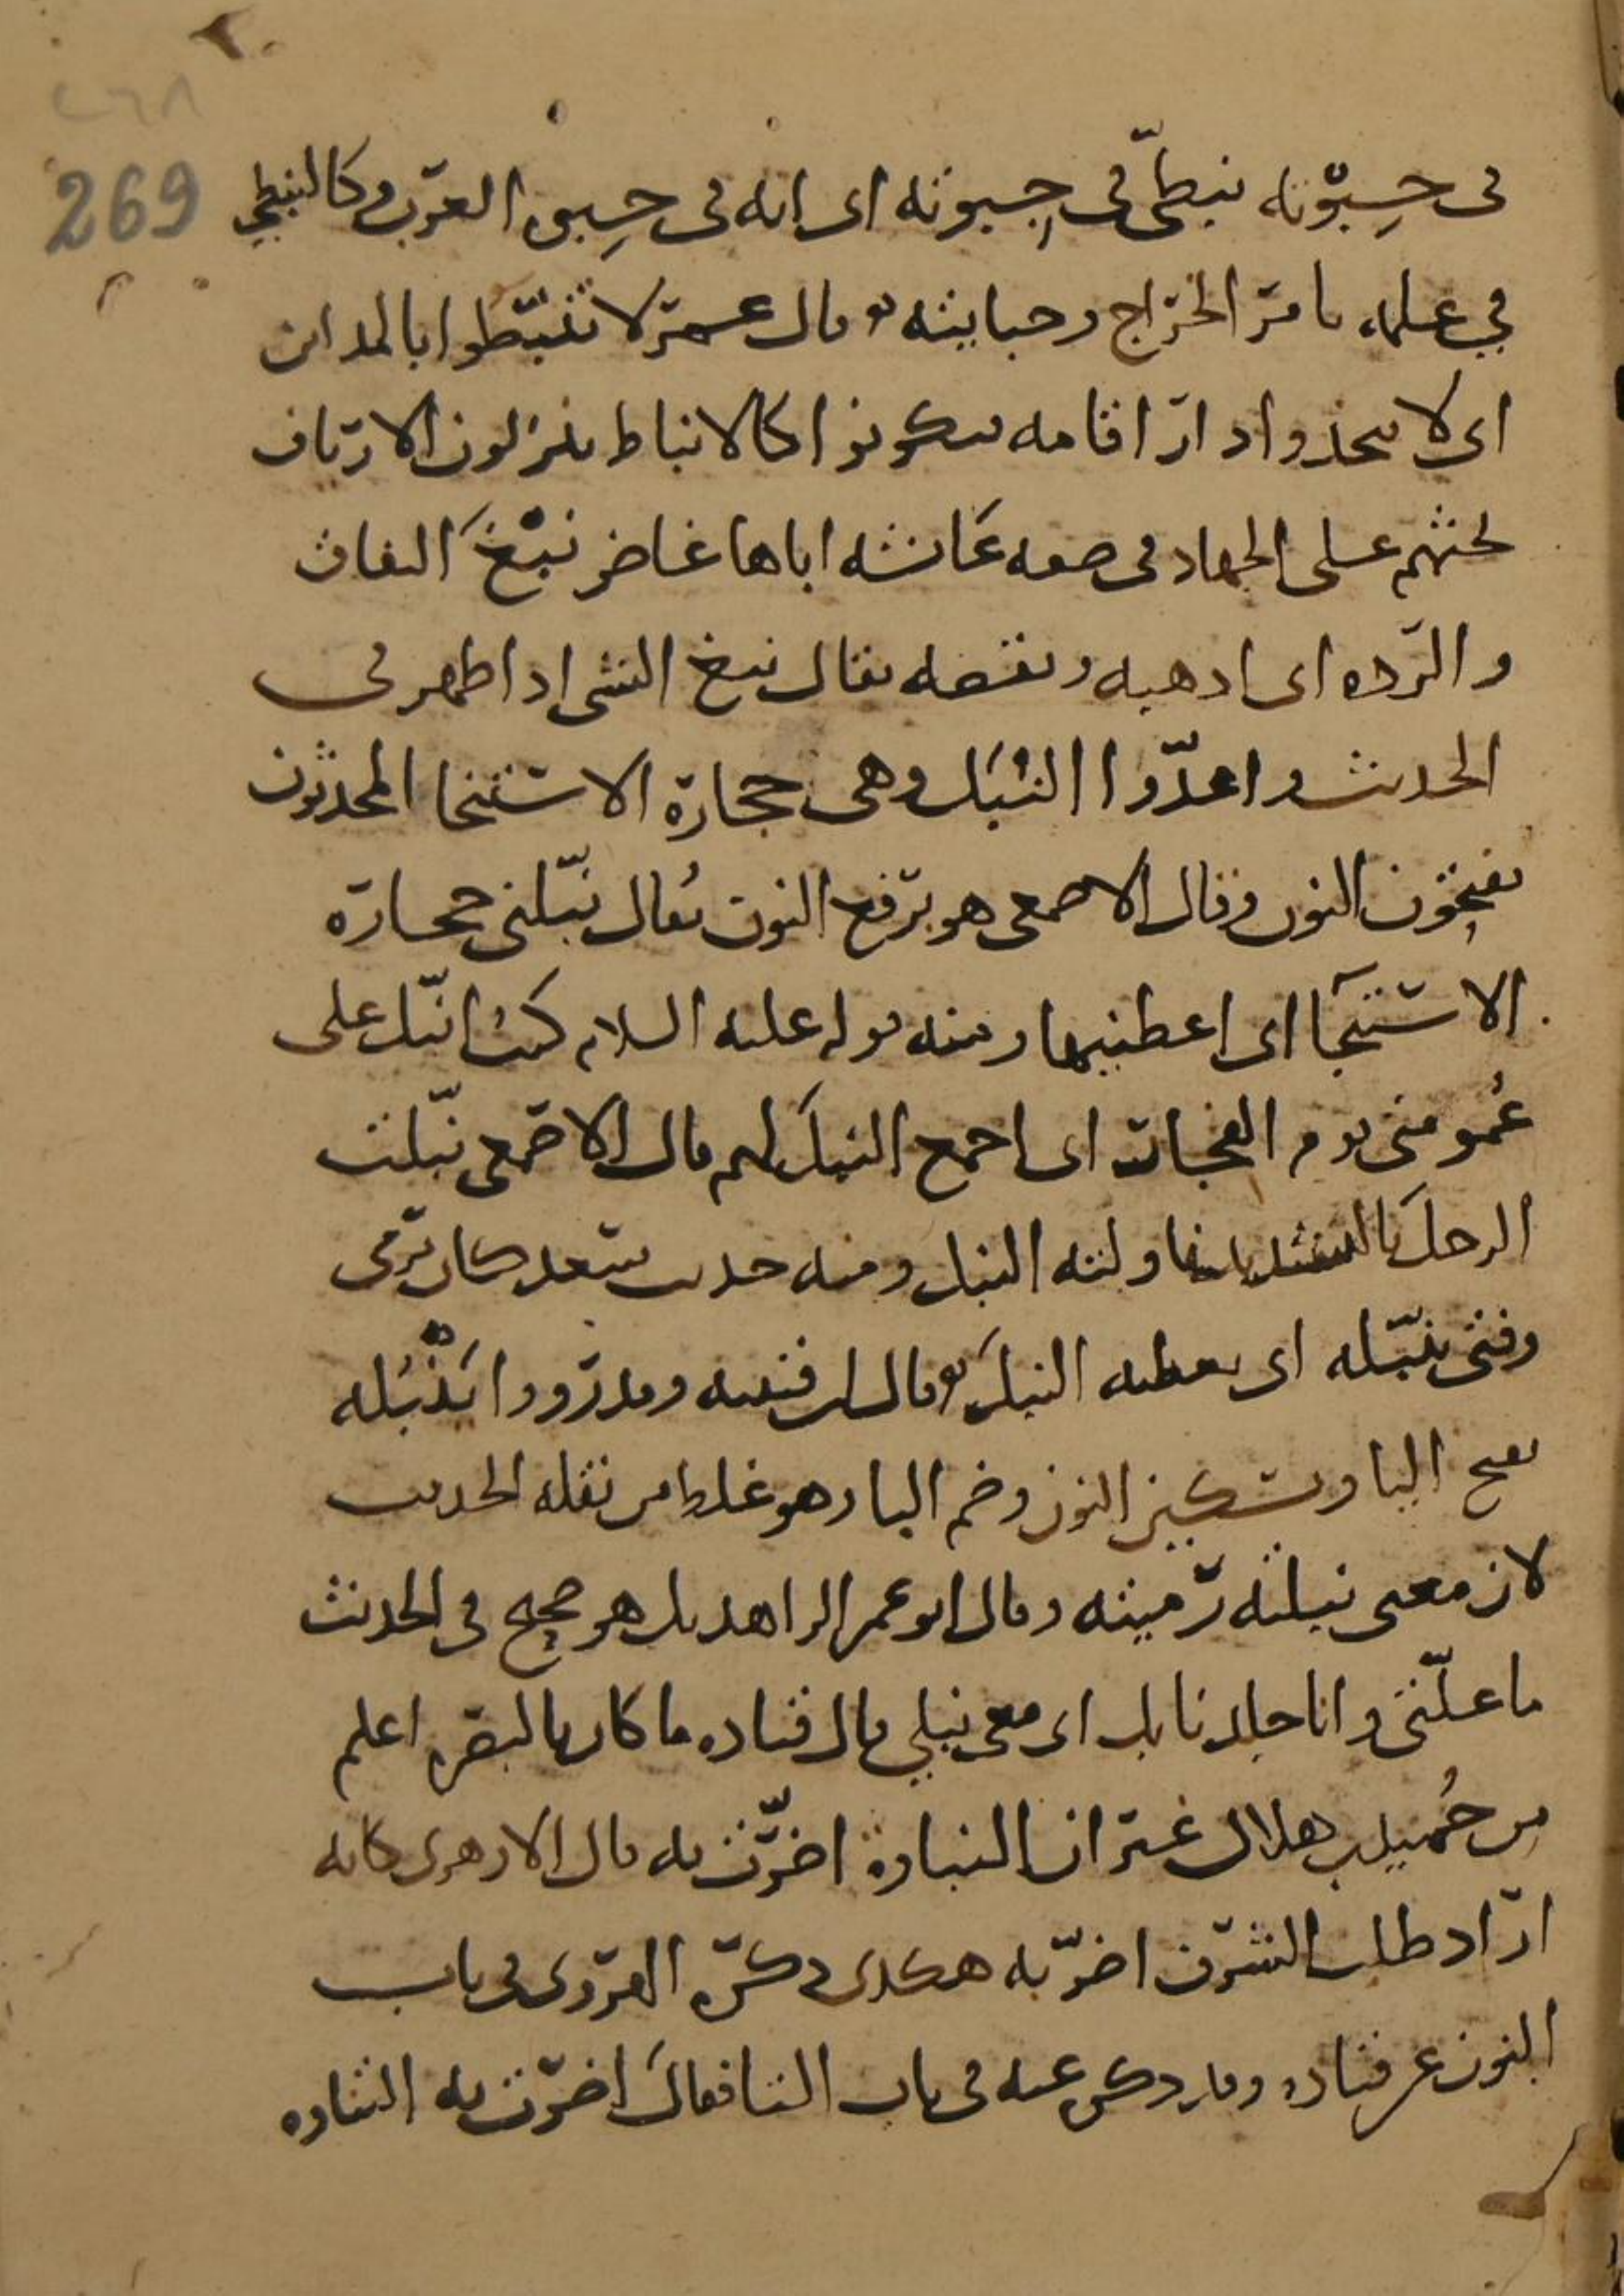 ٢٦٨
269
فى حِبْوته نبطىّ فى جِبوته اى انه فى حِبوه العرب وكالنبطي
في علمه بامر الخراج وجبايته وقال عمر لا تنبّطوا بالمداين
اى لا تتخذوا دار اقامه فتكونوا كالانباط ينزلون الارياف
لحثهم على الجهاد فى صفه عائشه اباها غاض نبْغَ النفاق
والرّده اى اذهبه ونقصه يقال نبغ الشى اذا ظهر فى
الحديث واعدّوا النُبَل وهى حجارة الاستنجا المحدثون
يفتحون النون وقال الاصمعى هو برفع النون يُقال نبّلنى حجارة
الاستنجآ اى اعطنيها ومنه قوله عليه السلام كنت انبّل على
عُمومتى يوم الفجار اى اجمع النبلَ لهم قال الاصمعى نبّلت
الرجلَ بالتشديد ناولته النبل ومنه حديث سعد كان يرمى
وفتى ينبّله اى يعطيه النبلَ وقال ابن قتيبه وقد رووا يَنْبُله
بفتح اليا وتسكين النون وضم البا وهو غلط من نقلة الحديث
لان معنى نبلته رميته وقال ابو عمر الزاهد بل هو صحيح فى الحديث
ما علّتى وانا جلد نابل اى معى نبلي قال قتاده ما كان بالبصره اعلم
من حُميد بن هلال غير ان النباوة اضرّت به قال الازهرى كانه
اراد طلب الشرف اضرّ به هكذى ذكره الهروى فى باب
النون عن قتاده وقد ذكر عنه فى باب التا فقال اضرّت به التناوه